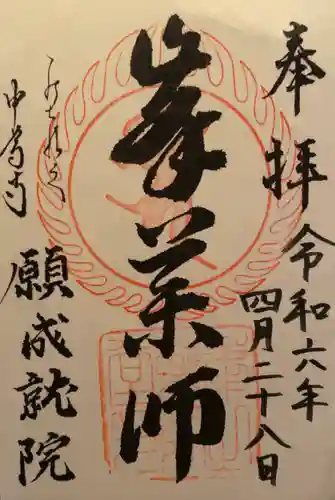 奉拝
令和六年
四月二十八日
峯薬師
中尊寺
願成就院